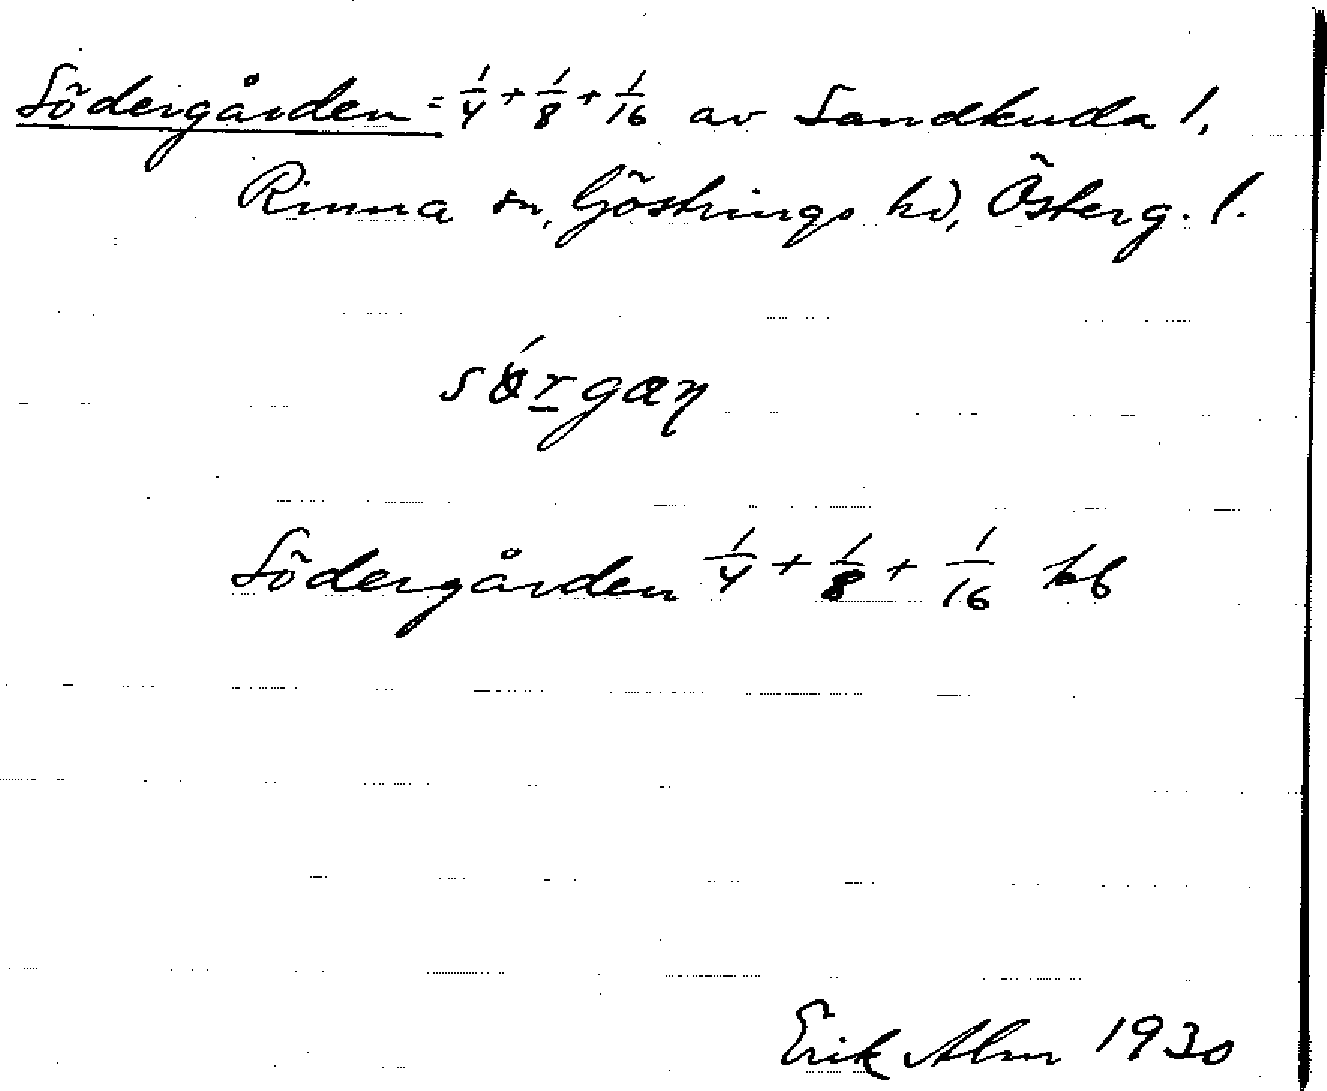 Södergården = 1/4 + 1/8 + 1/16 av Sandkuda 1,
Rinna sn, Göstrings hd, Österg. l.
Södergården 1/4 + 1/8 + 1/16 jb
Erik Alm 1930